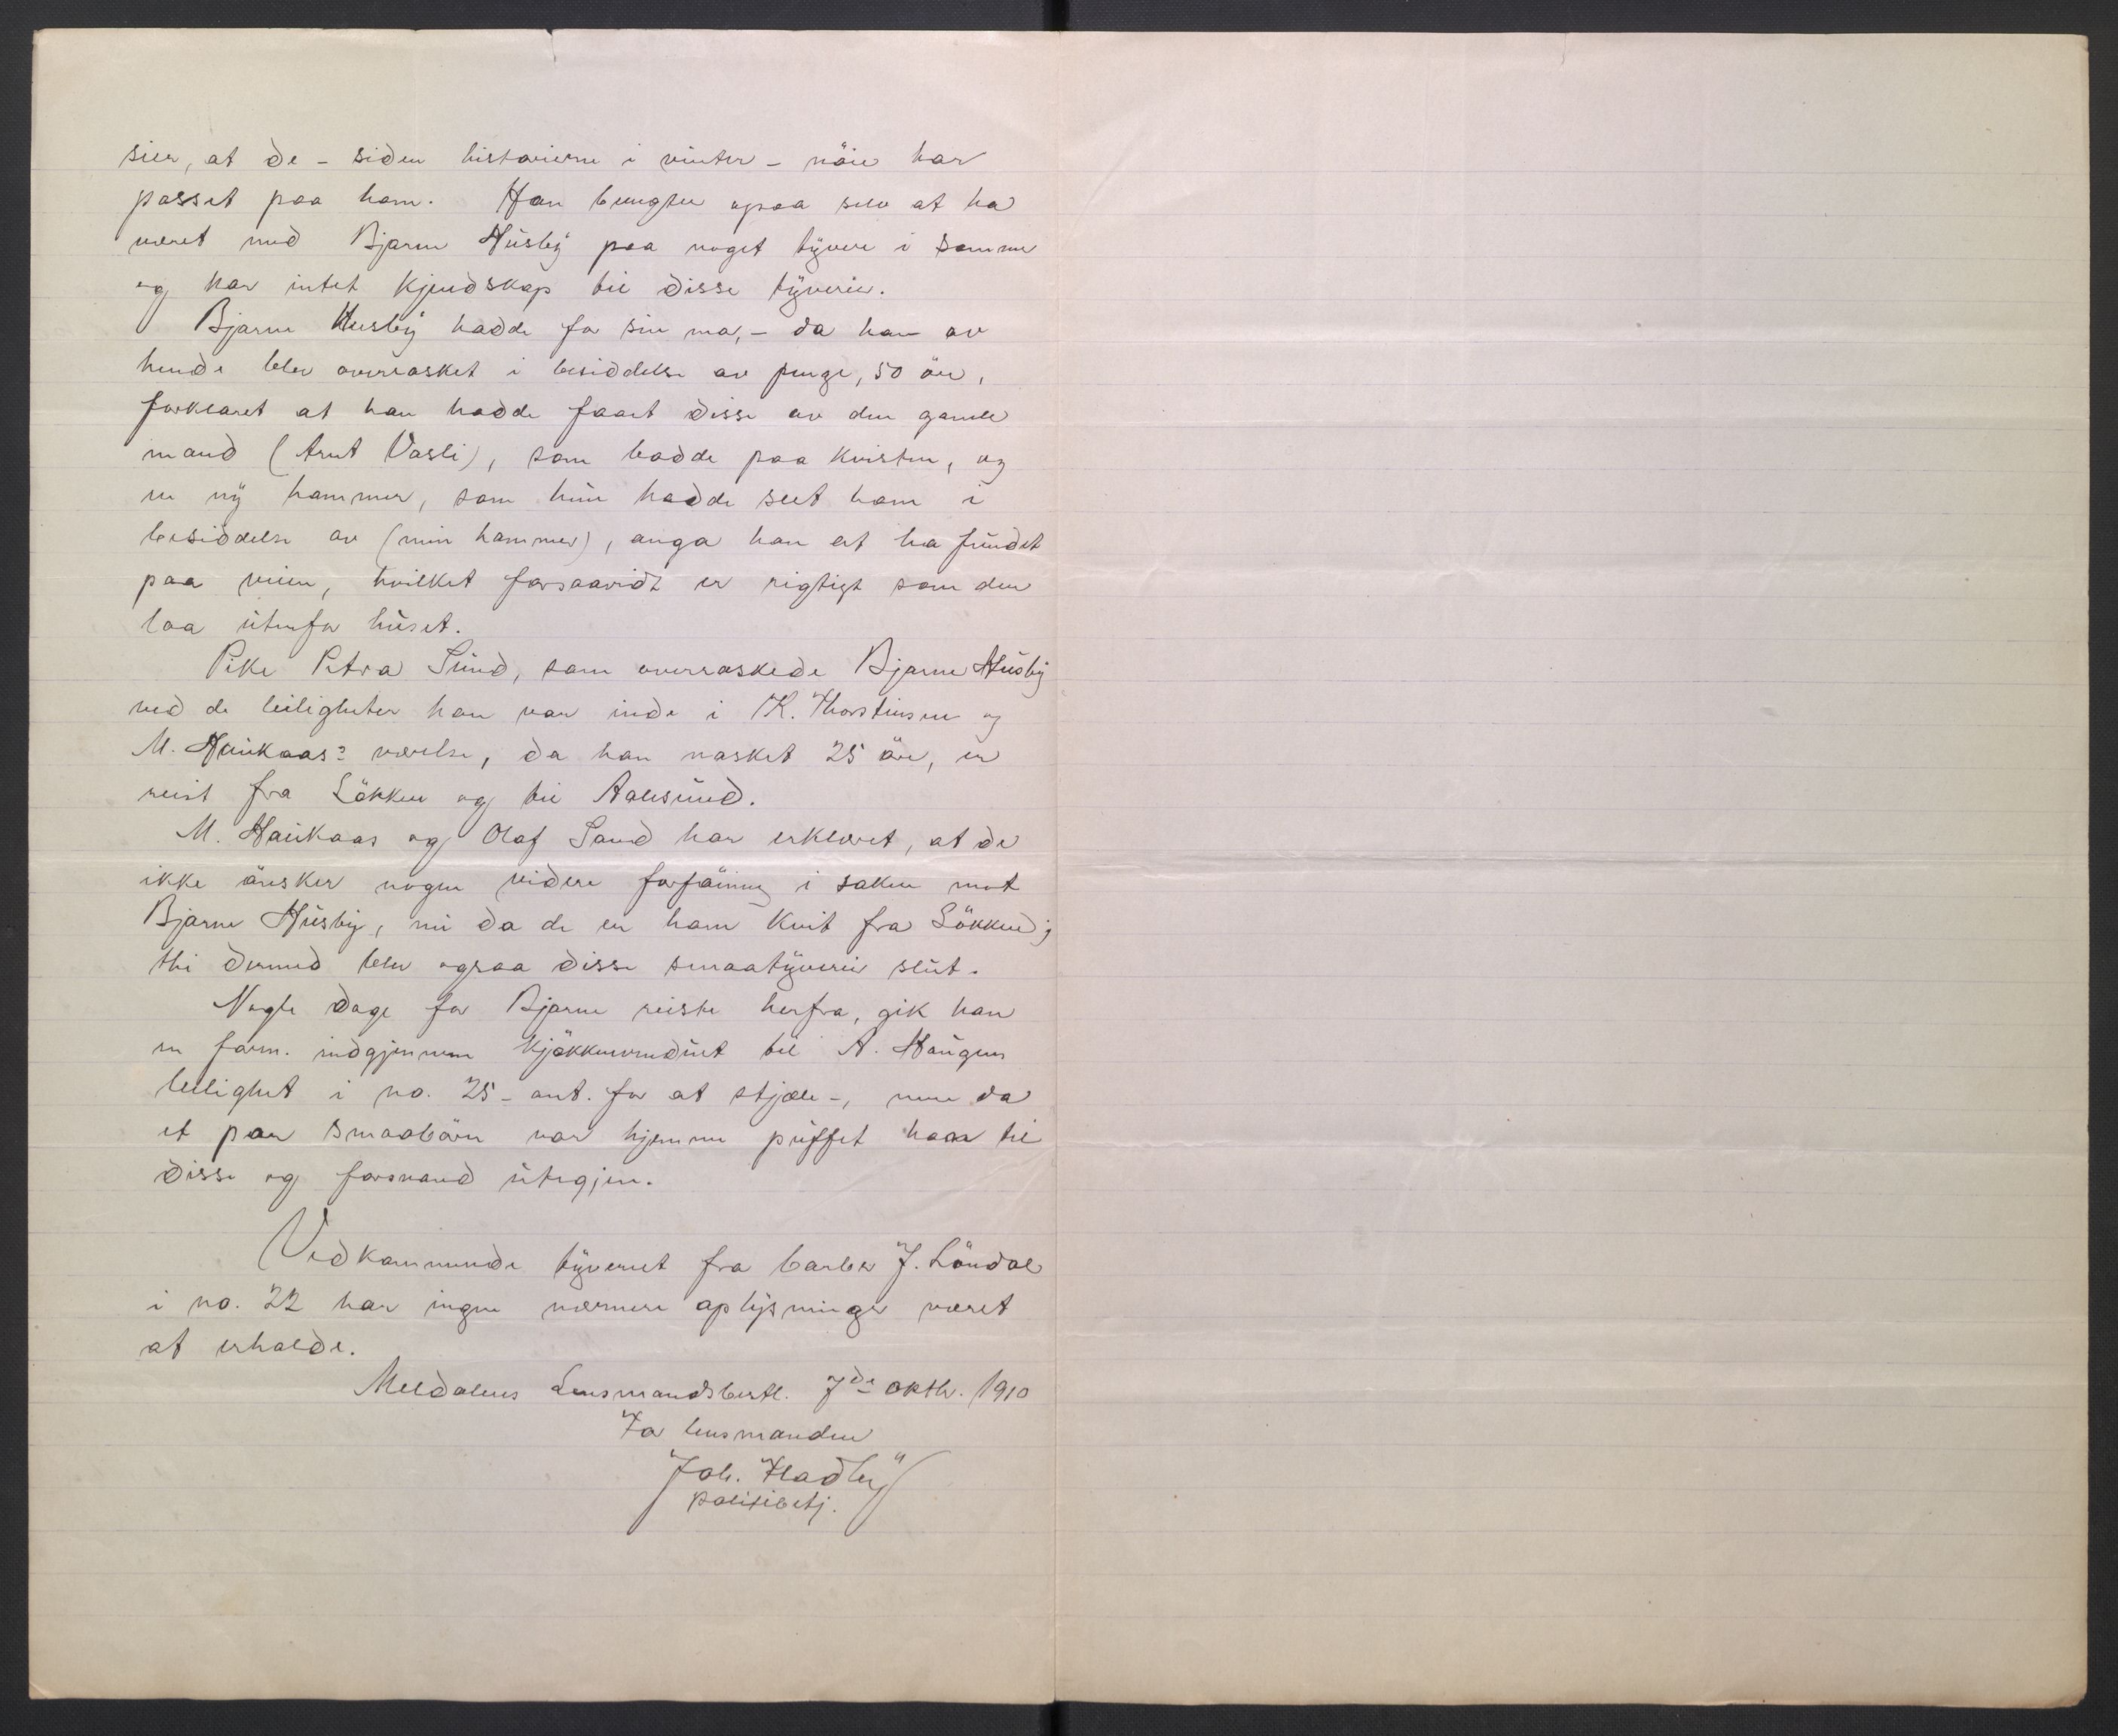 sier, at de - siden historierne i vinter - nöie har
passet paa ham. Han benegter ogsaa selv at ha
været med Bjarne Husby paa noget tyveri i sommer
og har intet kjendskap til disse tyverier.
Bjarne Husby hadde for sin ma, - da han av
hende blev overrasket i besiddelse av penge, 50 öre,
forklaret at han hadde faaet disse av den gamle
mand (Arnt Vasli), som bodde paa kvisten, og
en ny hammer, som hun hadde seet ham i
besiddelse av (min hammer), anga han at ha fundet
paa veien, hvilket forsaavidt er rigtigt som den
laa utenfor huset.
Pike Petra Sund, som overraskede Bjarne Husby
ved de leiligheter han var inde i K. Thorstensen og
M. Haukaas's værelse, da han nasket 25 öre, er
reist fra Lökken og til Aalesund.
M. Haukaas og Olaf Sand har erklæret, at de
ikke önsker nogen videre forföining i saken mot
Bjarne Husby, nu da de er ham kvit fra Lökken;
thi dermed blev ogsaa disse smaatyverier slut.
Nogle dage för Bjarne reiste herfra, gik han
en form. indgjennem kjökkenvinduet til A. Haugens
leilighet i no. 25 - ant. for at stjæle -, men da
et par smaabörn var hjemme puffet han til
disse og forsvand utigjen.
Vedkommende tyveriet fra barber J. Löndal
i no. 22 har ingen nærmere oplysninger været
at erholde.
Meldalens Lensmandsbestl. 7de oktbr. 1910
For lensmanden
Joh. Fladby
politibetj.